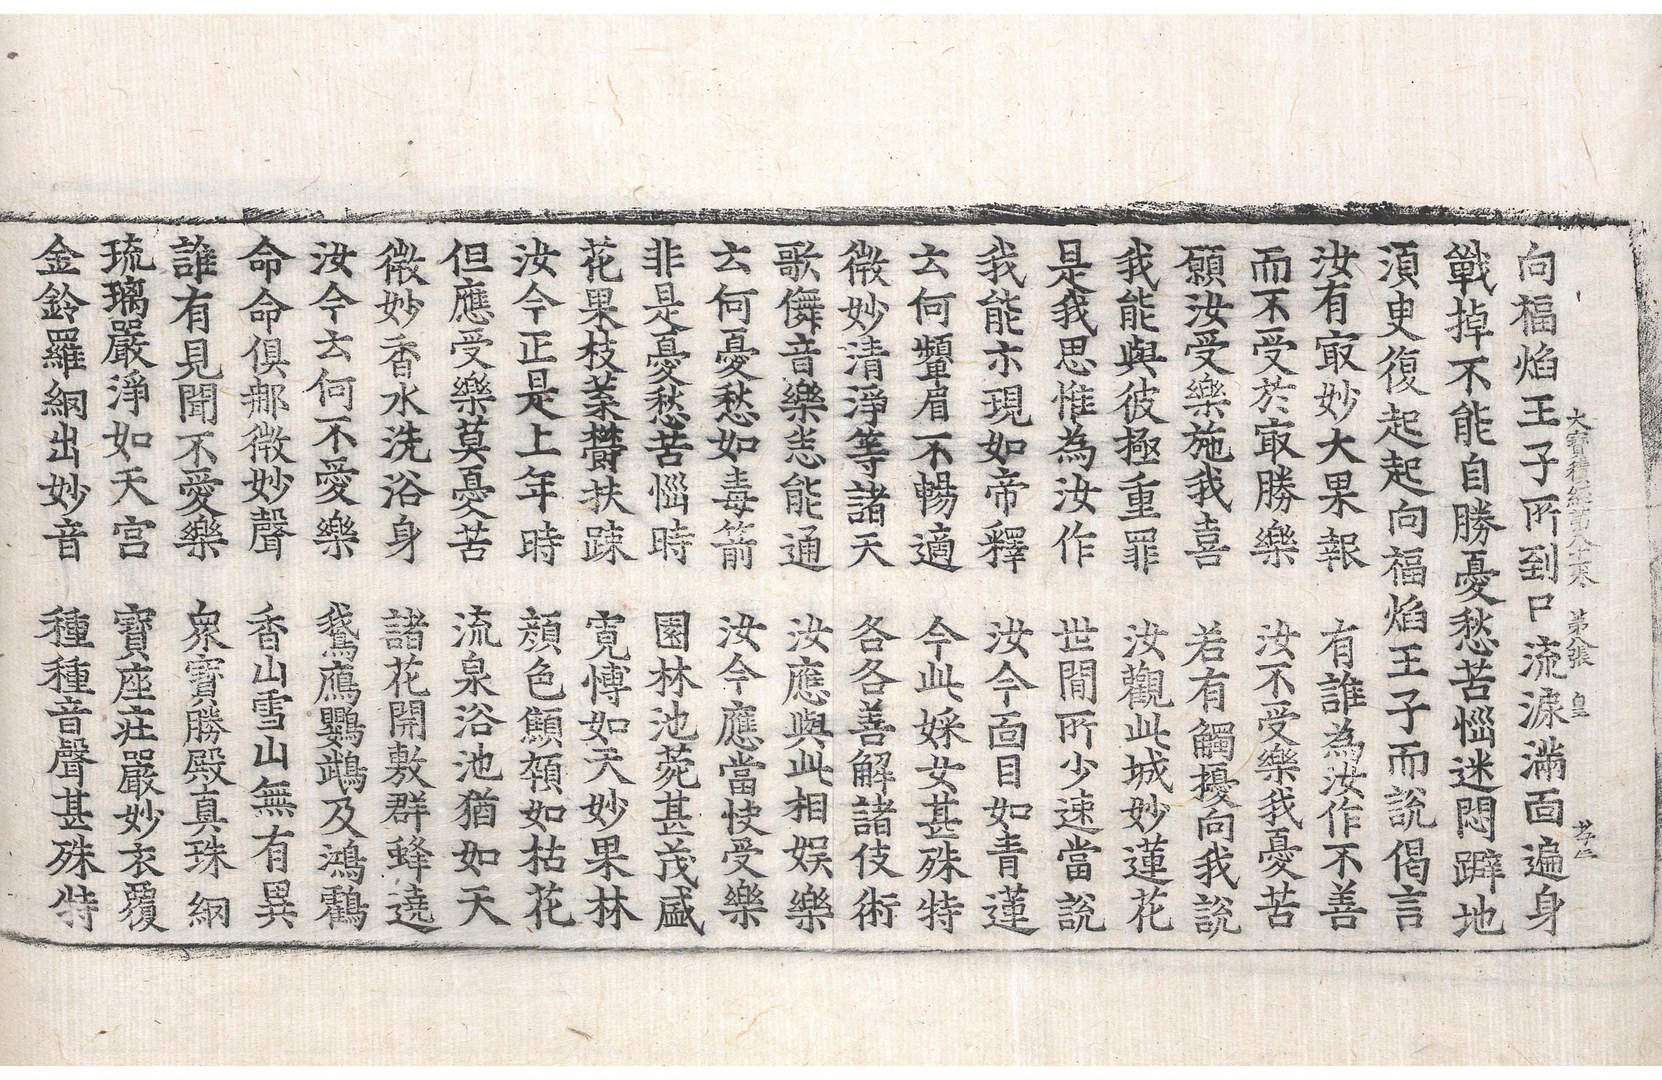 大寶積經第八十一 第 張 皇
向福焰王子所到已流淚滿面遍身
戰掉不能自勝憂愁苦惱迷悶躃地
湏臾復起起向福焰王子而說偈言
汝有㝡妙大果報 有誰為汝作不善
而不受於㝡勝樂 汝不受樂我憂苦
願汝受樂施我喜 若有觸擾向我說
我能與彼極重罪 汝觀此城妙蓮花
是我思惟為汝作 世間所少速當說
我能示現如帝釋 汝今面目如青蓮
云何顰眉不暢適 今此婇女甚殊特
微妙清淨等諸天 各各善解諸伎術
歌儛音樂悉能通 汝應與此相娛樂
云何憂愁如毒箭 汝今應當快受樂
非是憂愁苦惱時 園林池苑甚茂盛
花果枝葉欝扶踈 寬愽如天妙果林
汝今正是上年時 顔色顦顇如枯花
但應受樂莫憂苦 流泉浴池猶如天
微妙香水洗浴身 諸花開敷群蜂遶
汝今云何不愛樂 鵝鴈鸚鵡及鴻鸖
命命俱郍微妙聲 香山雪山無有異
誰有見聞不愛樂 衆寶勝殿真珠網
琉璃嚴淨如天宮 寶座庄嚴妙衣覆
金鈴羅網出妙音 種種音聲甚殊特